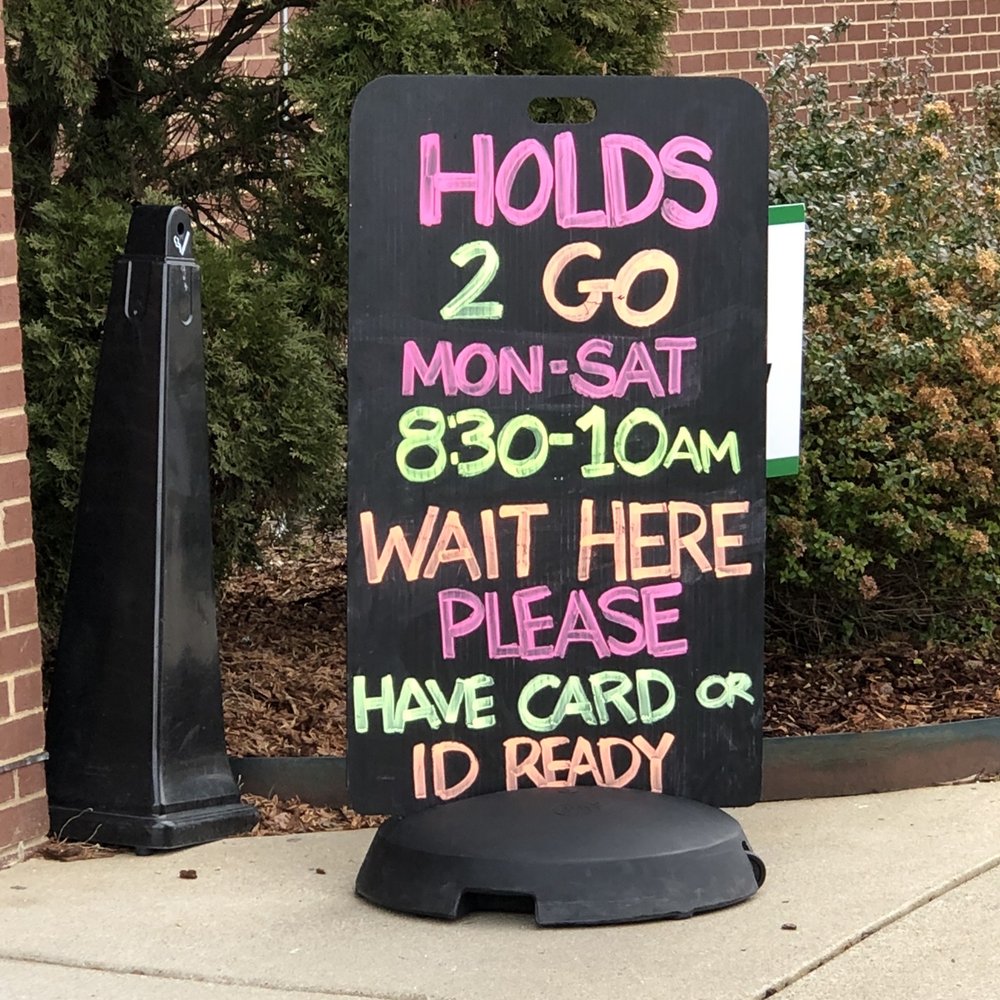 HOLDS
2 GO
MON-SAT
8:30-10AM
WAIT HERE
PLEASE
HAVE CARD OR
ID READY